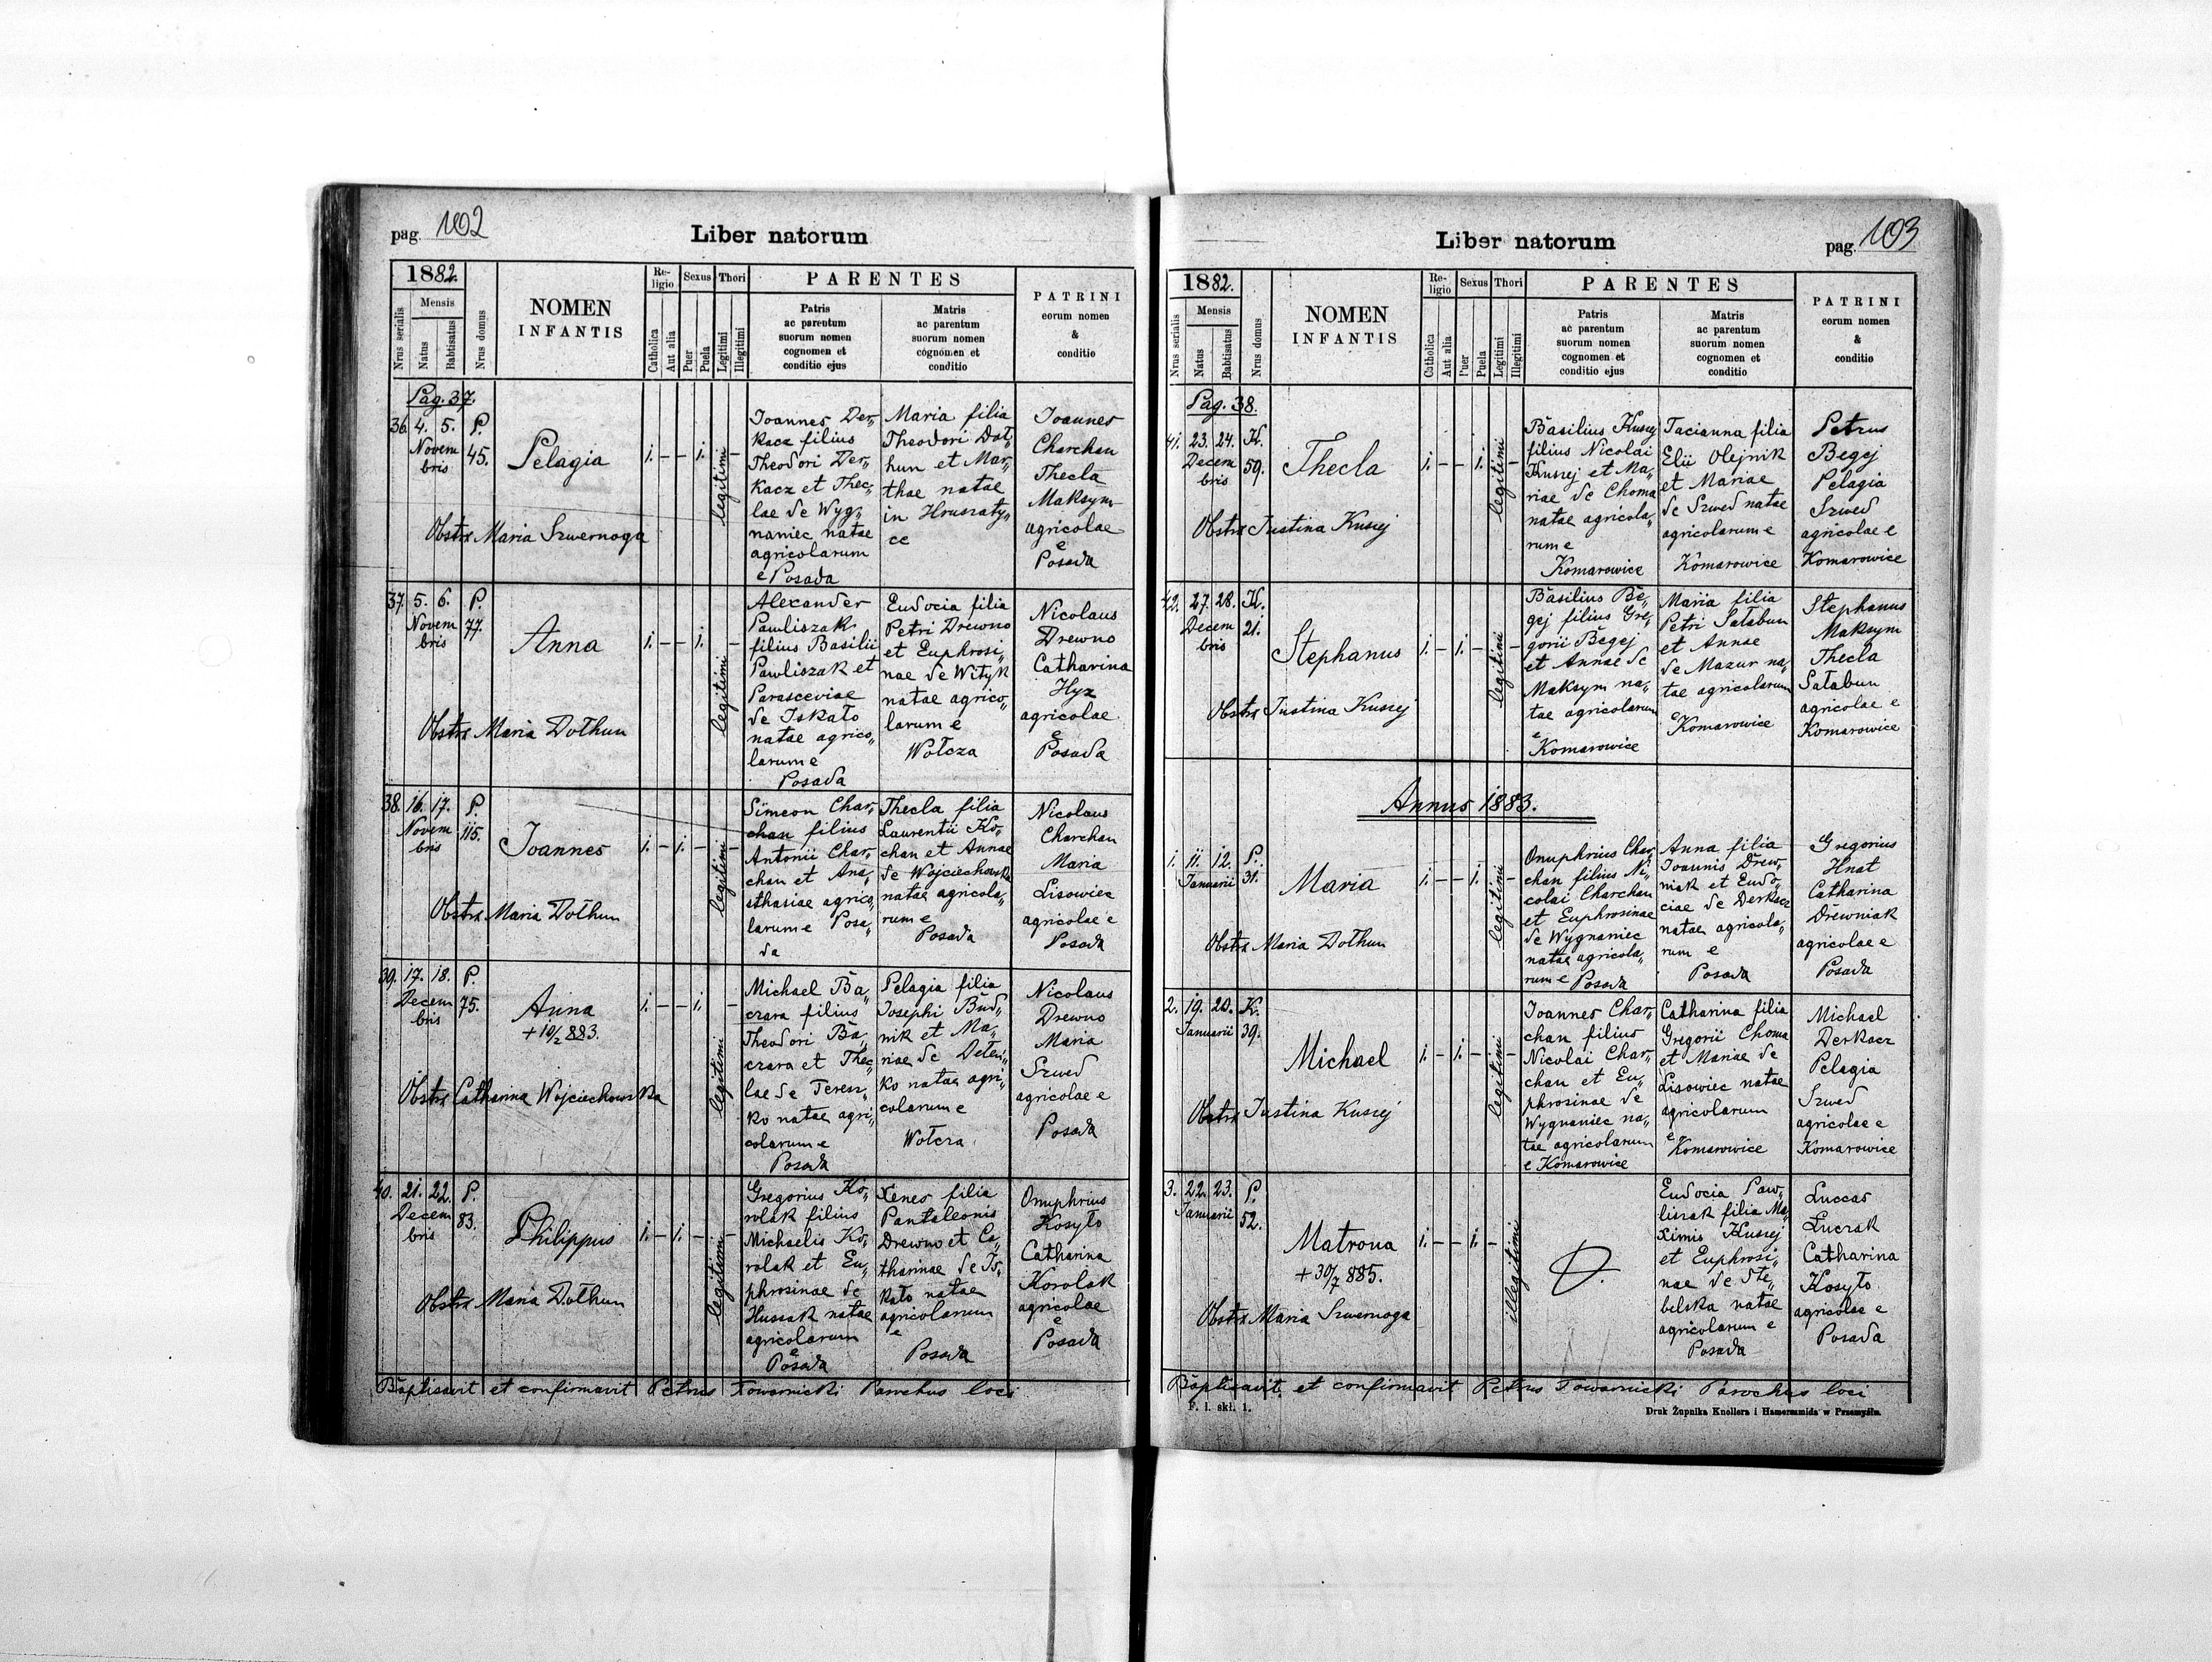 pag. 102
Liber natorum
1882.
Nrus serialis
Mensis
Natus
Babtisatus
Nrus domus
NOMEN
INFANTIS
Re-
ligio
Catholica
Aut alia
Sexus
Puer
Puela
Thori
Legitimi
Illegitimi
PARENTES
Patris
ac parentum
suorum nomen
cognomen et
conditio ejus
Matris
ac parentum
suorum nomen
cognomen et
conditio
PATRINI
eorum nomen
&
conditio
Pag. 37.
36. 4. 5. P.
Novem
bris
45.
Pelagia
1. – – 1. legitimi –
Obstx Maria Szwernoga
Joannes Der„
kacz filius
Theodori Der„
kacz et Thec„
lae de Wyg„
naniec natae
agricolarum
e Posada
Maria filia
Theodori Doł„
hun et Mar„
thae natae
in Hruszaty„
ce
Joannes
Charchan
Thecla
Maksym
agricolae
e
Posada
37. 5. 6. P.
Novem
bris
77.
Anna
1. – – 1. legitimi –
Obstx Maria Dołhun
Alexander
Pawliszak
filius Basilii
Pawliszak et
Parasceviae
de Iskało
natae agrico„
larum e
Posada
Eudocia filia
Petri Drewno
et Euphrosi„
nae de Wityk
natae agrico„
larum e
Wołcza
Nicolaus
Drewno
Catharina
Hyz
agricolae
e
Posada
38. 16. 17. P.
Novem
bris
115.
Joannes
1. – 1. – legitimi –
Obstx Maria Dołhun
Simeon Char„
chan filius
Antonii Char„
chan et Ana„
sthasiae agrico„
larum e Posa„
da
Thecla filia
Laurentii Ko„
chan et Annae
de Wojciechowska
natae agricola„
rum e
Posada
Nicolaus
Charchan
Maria
Lisowiec
agricolae e
Posada
39. 17. 18. P.
Decem
bris
75.
Anna
+ 10/2 883.
1. – – 1. legitimi –
Obstx Catharina Wojciechowska
Michael Ba„
czara filius
Theodori Ba„
czara et Thec„
lae de Teresz„
ko natae agri„
colarum e
Posada
Pelagia filia
Josephi Bud„
nik et Ma„
riae de
ko natae agri„
colarum e
Wołcza
Nicolaus
Drewno
Maria
Szwed
agricolae e
Posada
40. 21. 22. P.
Decem
bris
83.
Philippus
1. – 1. – legitimi –
Obstx Maria Dołhun
Gregorius Ko„
rolak filius
Michaelis Ko„
rolak et Eu„
phrosinae de
Hussak natae
agricolarum
e
Posada
Xenes filia
Pantaleonis
Drewno et Ca„
tharinae de Is„
kało natae
agricolarum
e
Posada
Onuphrius
Kosyło
Catharina
Korolak
agricolae
e
Posada
Baptisavit et confirmavit Petrus Towarnicki Parochus loci
Liber natorum
pag. 103
1882.
Nrus serialis
Mensis
Natus
Babtisatus
Nrus domus
NOMEN
INFANTIS
Re-
ligio
Catholica
Aut alia
Sexus
Puer
Puela
Thori
Legitimi
Illegitimi
PARENTES
Patris
ac parentum
suorum nomen
cognomen et
conditio ejus
Matris
ac parentum
suorum nomen
cognomen et
conditio
PATRINI
eorum nomen
&
conditio
Pag. 38.
41. 23. 24. K.
Decem
bris
59.
Thecla
1. – – 1. legitimi –
Obstx Justina Kusiej
Basilius Kusiej
filius Nicolai
Kusiej et Ma„
riae de Choma
natae agricola„
rum e
Komarowice
Tacianna filia
Elii Olejnik
et Mariae
de Szwed natae
agricolarum e
Komarowice
Petrus
Begej
Pelagia
Szwed
agricolae e
Komarowice
42. 27. 28. K.
Decem
bris
21.
Stephanus
1. – 1. – legitimi –
Obstx Justina Kusiej
Basilius Be„
gej filius Gre„
gorii Begej
et Annae de
Maksym na„
tae agricolarum
e
Komarowice
Maria filia
Petri Sałabun
et Annae
de Mazur na„
tae agricolarum
e
Komarowice
Stephanus
Maksym
Thecla
Sałabun
agricolae e
Komarowice
Annus 1883.
1. 11. 12. P.
Januarii
31.
Maria
1. – – 1. legitimi –
Obstx Maria Dołhun
Onuphrius Char„
chan filius Ni„
colai Charchan
et Euphrosinae
de Wygnaniec
natae agricola„
rum e Posada
Anna filia
Joannis Drew„
niak et Eudo„
ciae de Derkacz
natae agricola„
rum e
Posada
Gregorius
Hnat
Catharina
Drewniak
agricolae e
Posada
2. 19. 20. K.
Januarii
39.
Michael
1. – 1. – legitimi –
Obstx Justina Kusiej
Joannes Char„
chan filius
Nicolai Char„
chan et Eu„
phrosinae de
Wygnaniec na„
tae agricolarum
e Komarowice
Catharina filia
Gregorii Choma
et Mariae de
Lisowiec natae
agricolarum
e
Komarowice
Michael
Derkacz
Pelagia
Szwed
agricolae e
Komarowice
3. 22. 23. P.
Januarii
52.
Matrona
+ 30/7 885.
1. – – 1. – illegitimi
Obstx Maria Szwernoga
Eudocia Paw„
liszak filia Ma„
ximis Kusiej
et Euphrosi„
nae de Ste„
belska natae
agricolarum e
Posada
Luccas
Luczak
Catharina
Kosyło
agricolae e
Posada
Baptisavit et confirmavit Petrus Towarnicki Parochus loci
F. I. skł. 1.
Druk Żupnika Knollera i Hamerszmida w Przemyślu.